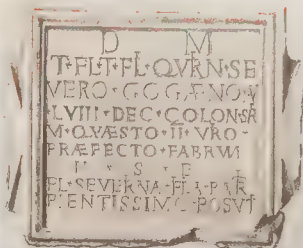 D M
T·FL·T·FL·QVRN·SE
VERO·
·LVIII·DEC·COLON·SR
M·QVÆSTO·II·VRO·
PRÆFECTO·FABRVM
H · S · E
FL·SEVERNA·FL·
PIENTISSIMO·POSVT